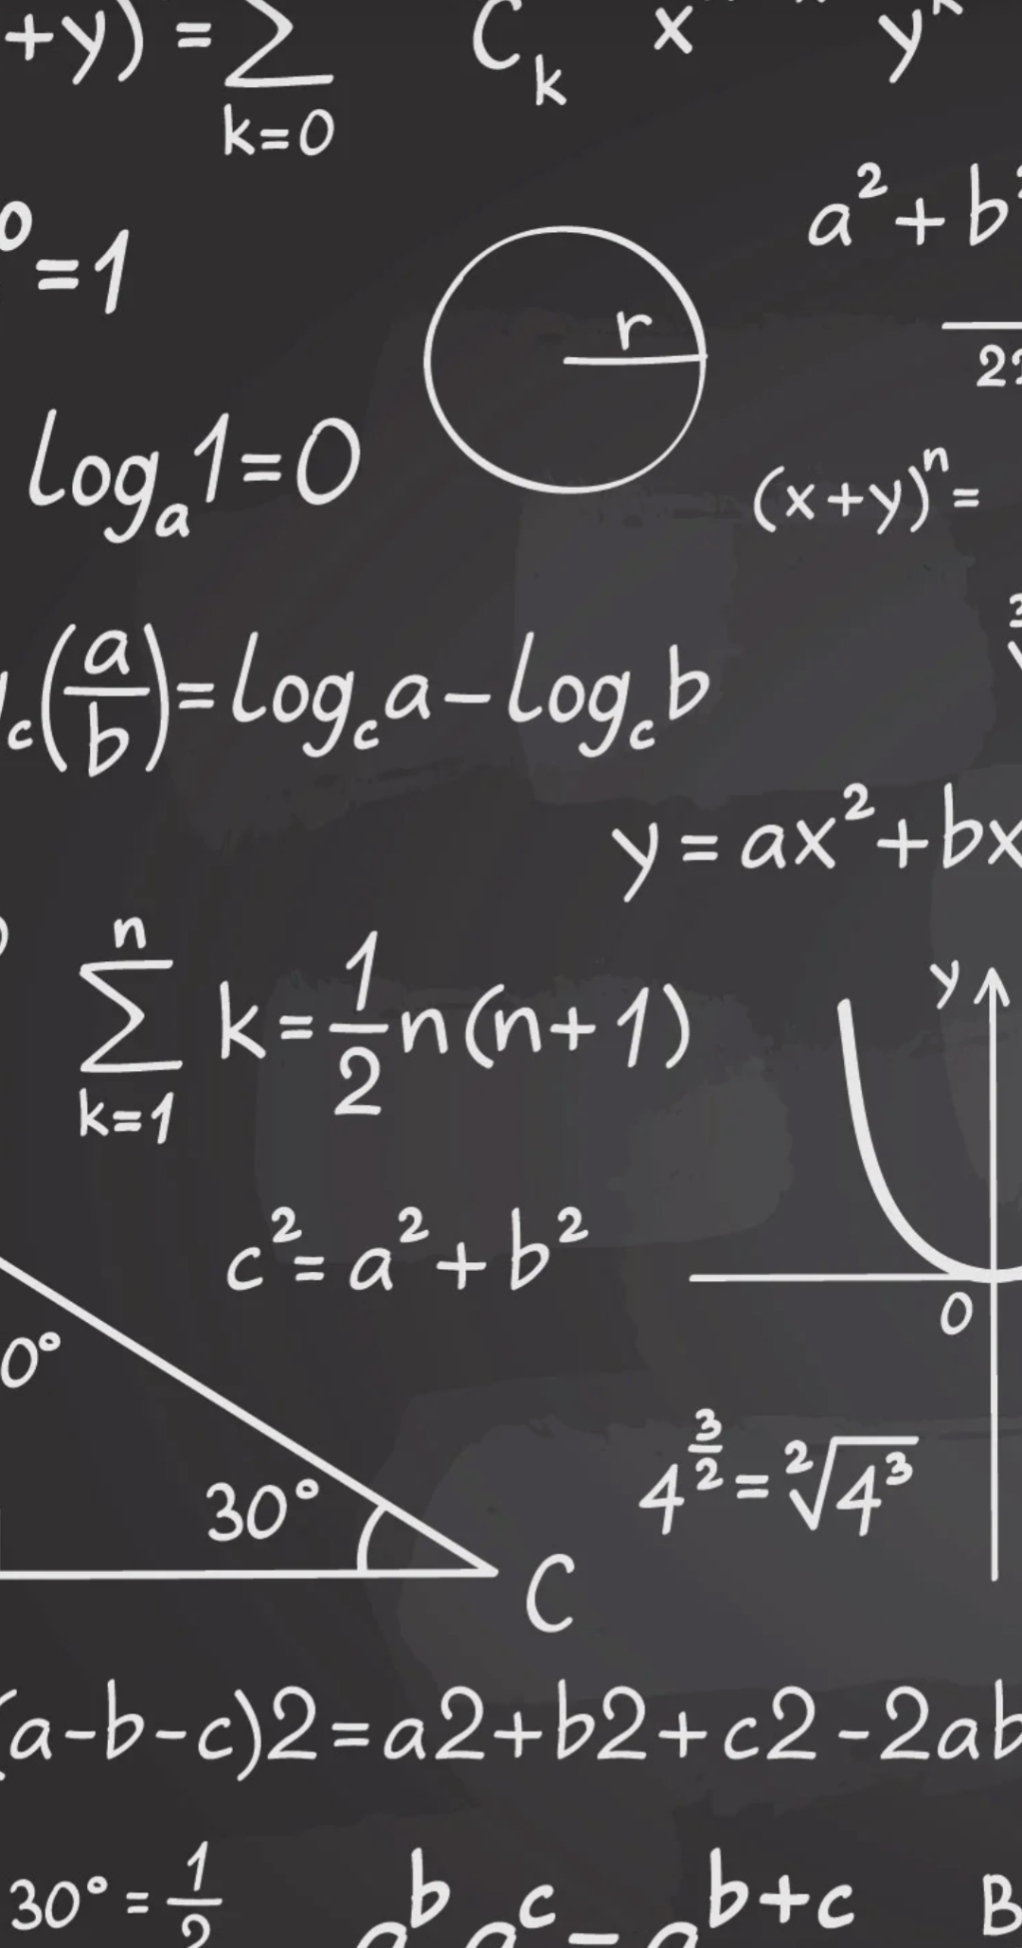 +y) = ∑ C x y^k
k=0 k
a² + b²
⁰ = 1
r
2
logₐ1=0
(x+y)ⁿ=
c(a/b) = log_c a – log_c b
y = ax² + bx
n
∑ k = 1/2 n(n+1)
k=1
y
c² = a² + b²
0
0°
4^(3/2) = ²√4³
30°
C
(a-b-c)2=a2+b2+c2-2ab
30° = 1/2 a^b a^c = a^(b+c) B